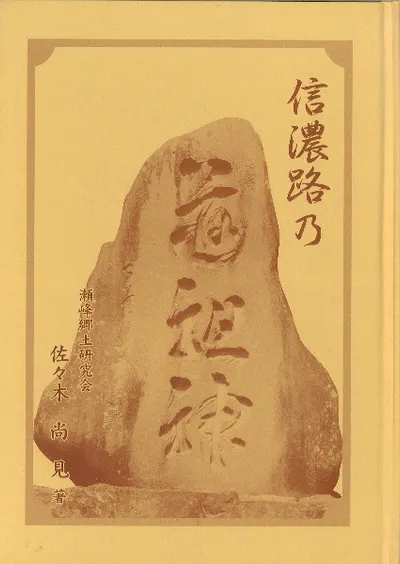 信濃路乃
道祖神
瀬峰郷土研究会
佐々木 尚見 著